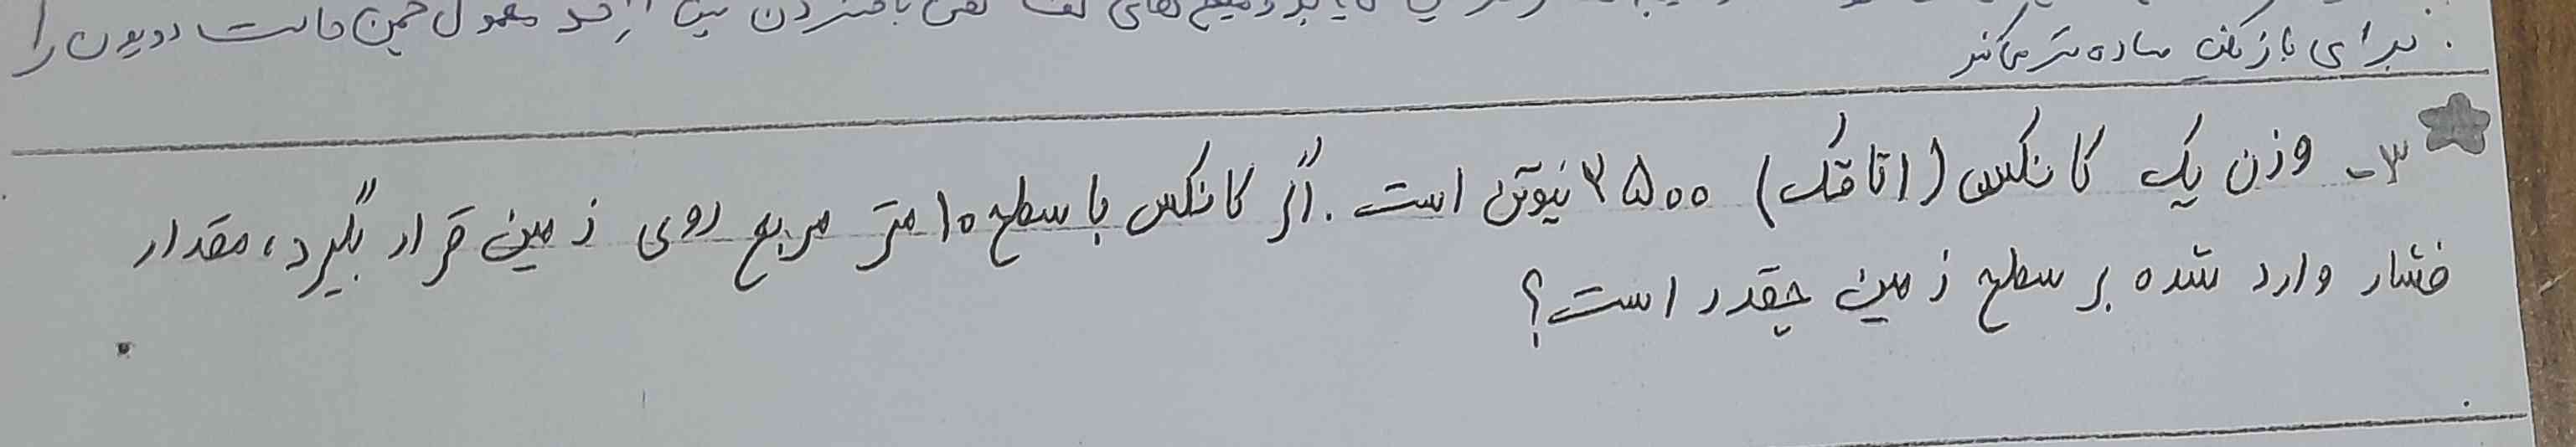 برای بازیکن ساده تر می کند.
۳- وزن یک کانکس (اتاقک) ۲۵۰۰ نیوتن است. اگر کانکس با سطح ۱۰ متر مربع روی زمین قرار بگیرد، مقدار
فشار وارد شده بر سطح زمین چقدر است؟